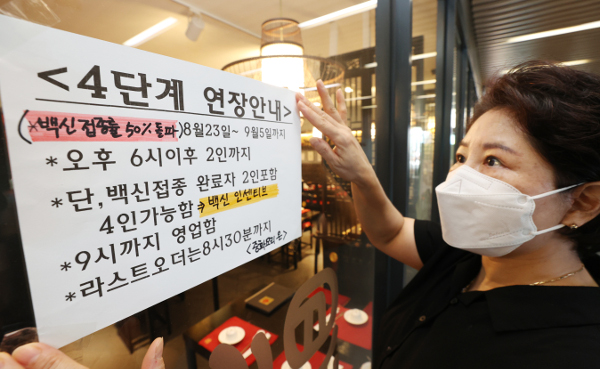 <4단계 연장안내>
(*백신접종률 50% 돌파) 8월23일~ 9월5일까지
*오후 6시이후 2인까지
*단, 백신접종 완료자 2인포함
4인가능함 → 백신 인센티브
*9시까지 영업함
*라스트오더는 8시30분까지